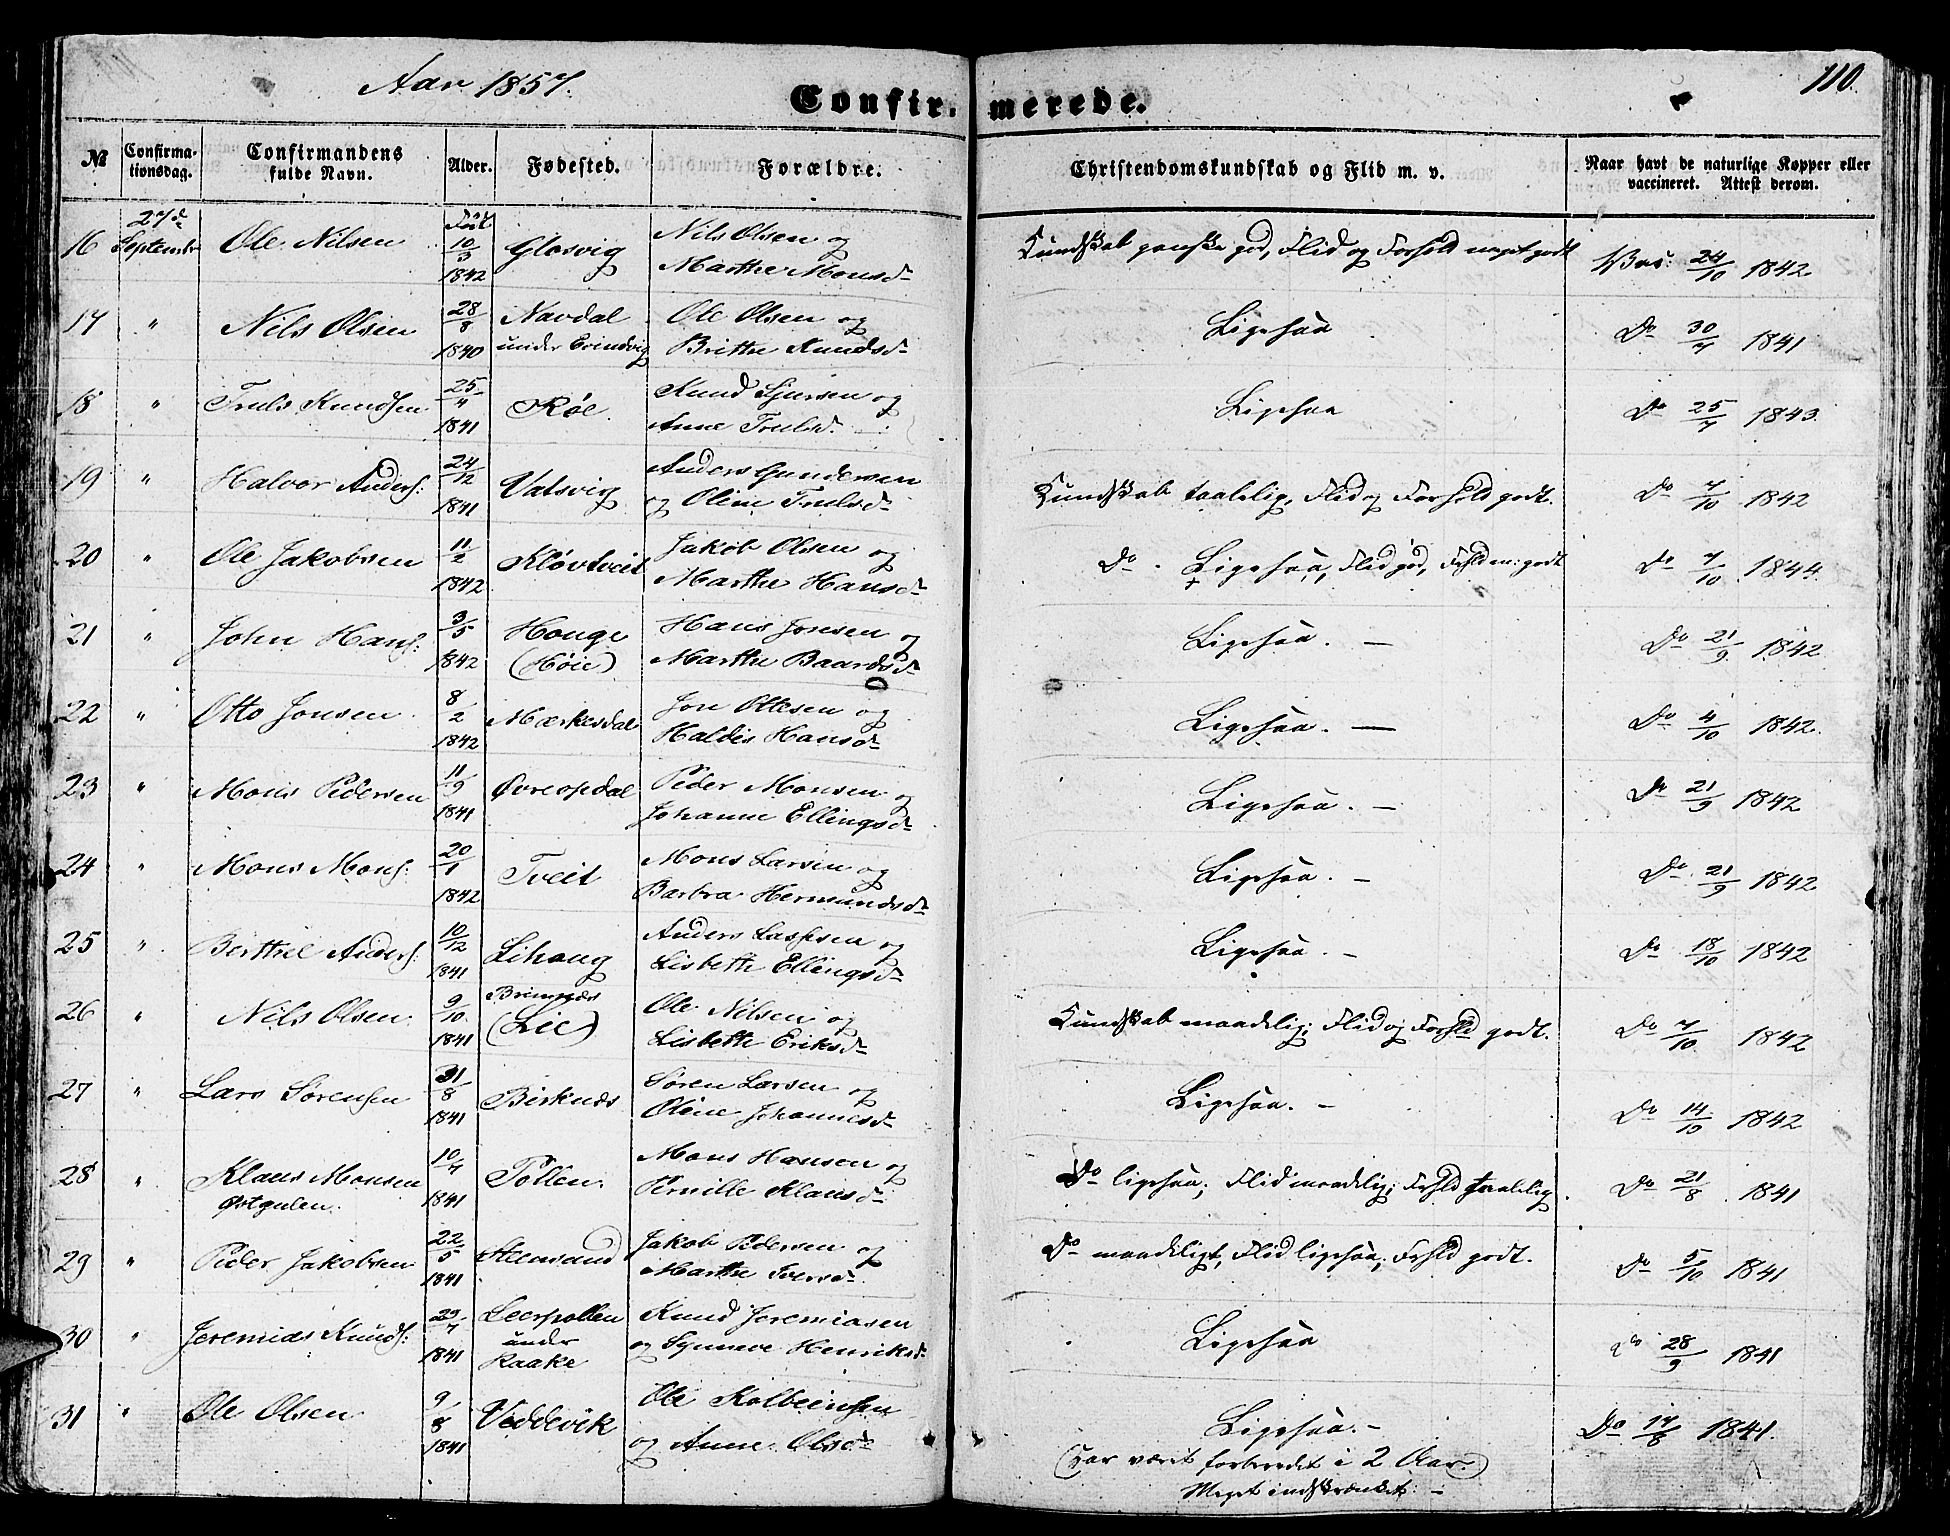 Aar 1857.
110.
Confir- merede.
№
Confirma-
tionsdag.
Confirmandens
fulde Navn.
Alder.
Fødested.
Forældre.
Christendomskundskab og Flid m. v.
Naar havt de naturlige Kopper eller
vaccineret. Attest derom.
16 27de September Ole Nilsen Født 10/3 1842 Glosvig Nils Olsen og
Marthe Monsdr Kundskab ganske god, Flid og Forhold meget godt Vac: 24/10 1842.
17 " Nils Olsen 28/8 1840 Navdal
under Evindvig Ole Olsen og
Brithe Knudsdr Ligesaa Do 30/7 1841
18 " Truls Knudsen 25/4 1841 Røe Knud Sjursen og
Anne Trulsd. Ligesaa Do 25/7 1843.
19 " Halvor Anders: 24/12 1841 Vatsvig Anders Gundersen
og Oline Trulsdr Kundskab taalelig, Flid og Forhold godt. Do 7/10 1842
20 " Ole Jakobsen 11/2 1842 Kløvtveit Jakob Olsen og
Marthe Hansdr Do Ligesaa, Flid god, Forhld m: godt Do 7/10 1844.
21 " John Hans: 3/5 1842 Houge
(Høie) Hans Jonsen og
Marthe Baardsdr Ligesaa. — Do 21/9 1842.
22 " Otto Jonsen 8/2 1842 Mærkesdal Jon Ottesen og
Haldis Hansdr Ligesaa. — Do 4/10 1842.
23 " Mons Pedersen 11/9 1841 Øvreopdal Peder Monsen og
Johanne Ellingsdr Ligesaa. — Do 21/9 1842
24 " Mons Mons: 20/1 1842 Tveit Mons Larsen og
Barbra Hermundsdr Ligesaa. — Do 21/9 1842
25 " Berthel Anders: 10/12 1841 Lihaug Anders Lassesen og
Lisbeth Ellingsdr Ligesaa. — Do 18/10 1842
26 " Nils Olsen 9/10 1841 Brimnæs
(Lie) Ole Nilsen og
Lisbeth Eriksdr Kundskab maadelig; Flid og Forhld godt. Do 7/10 1842
27 " Lars Sørensen 31/8 1841 Birknæs Søren Larsen og
Oline Johannesdr Ligesaa. — Do 14/10 1842
28 " Klaus Monsen
Østgulen. 10/4 1841 Pollen Mons Hansen og
Pernille Klausdr Do ligesaa; Flid maadelig; Forhld taalelig. Do 21/8 1841
29 " Peder Jakobsen 22/5 1841 Steensund Jakob Pedersen og
Marthe Iversdr Do maadeligt, Flid ligesaa; Forhld godt. Do 5/10 1841
30 " Jeremias Knuds: 29/7 1841 Leerpollen
under
Raake Knud Jeremiasen
og Synneve Henriksdr Ligesaa Do 28/9 1841
31 " Ole Olsen 9/8 1841 Veddevik Ole Kolbeinsen
og Anne Olsdr Ligesaa. — Do 17/8 1841.
(Har været forberedet i 2 Aar.)
Meget indskrænket: —